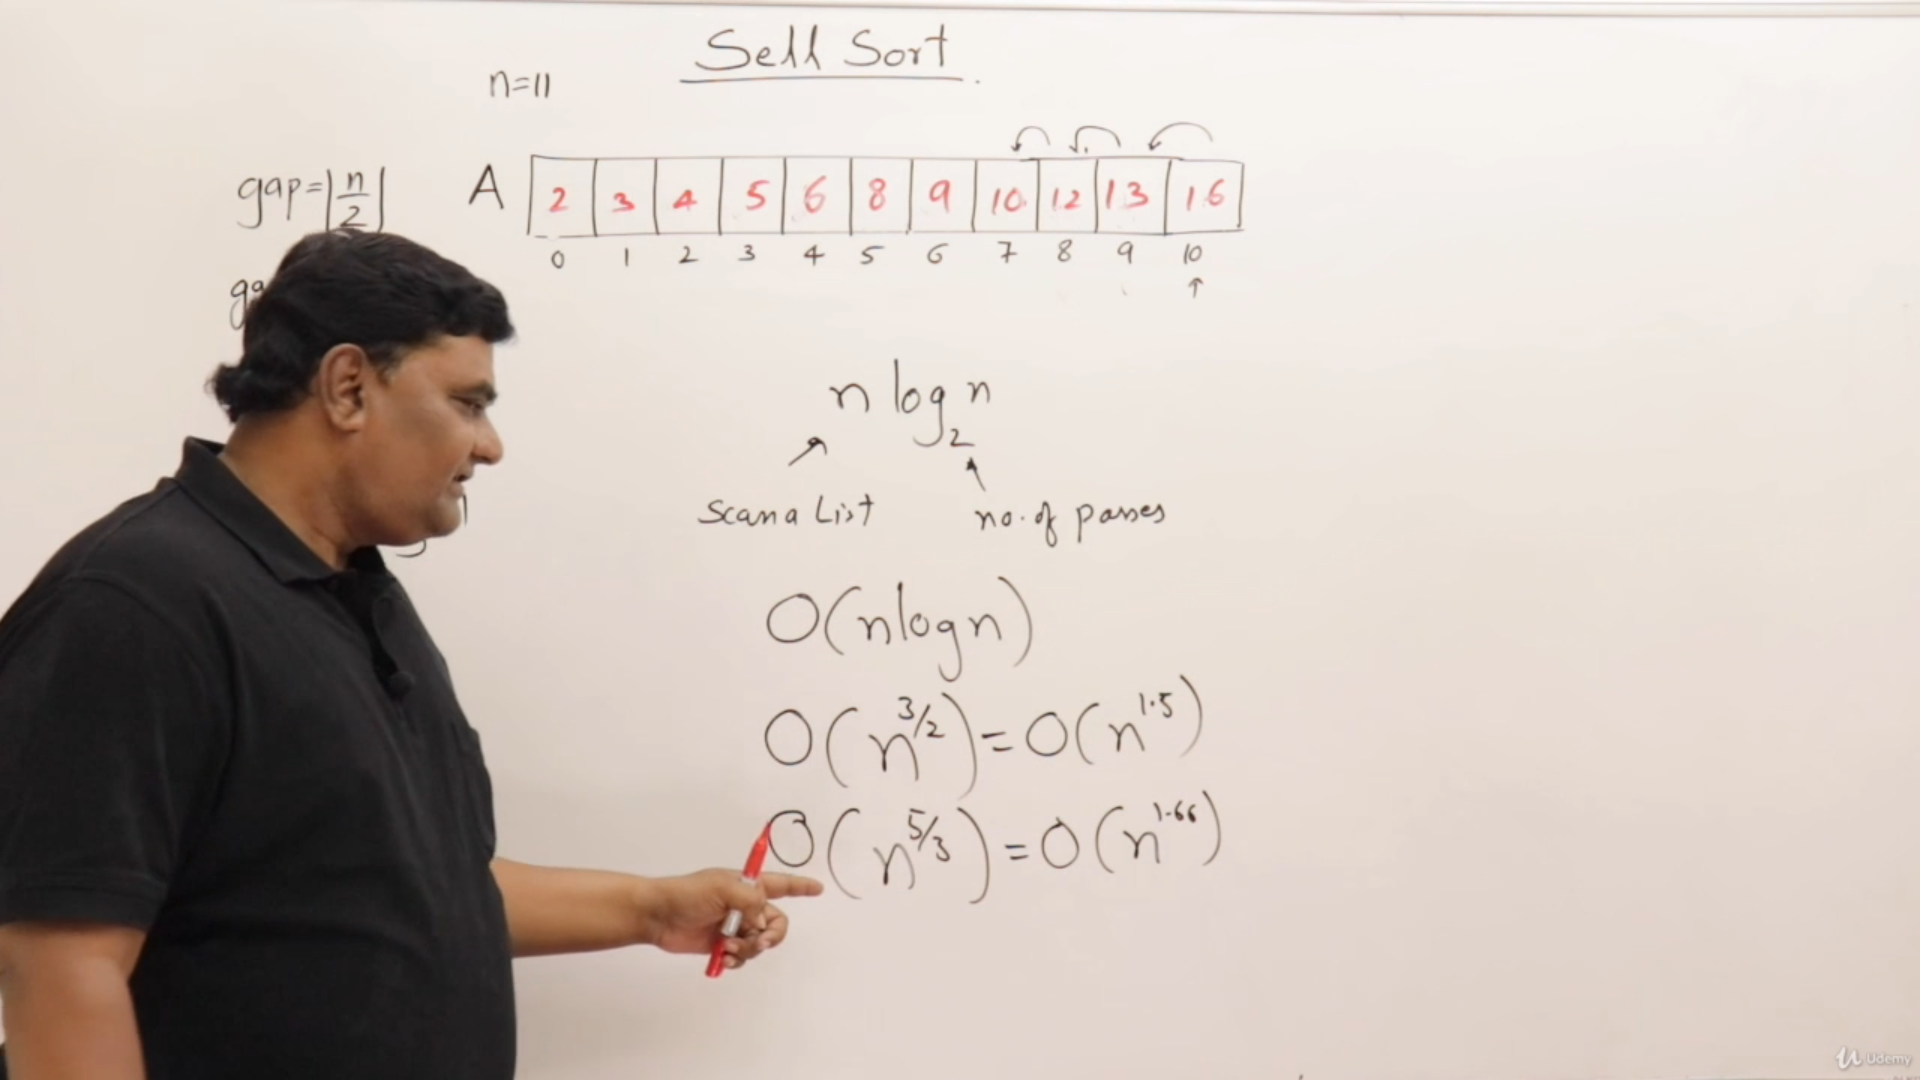 Sell Sort
n=11
gap=⌊n/2⌋
A 2 3 4 5 6 8 9 10 12 13 16
0 1 2 3 4 5 6 7 8 9 10
n log₂ n
Scan a List
no. of passes
O(nlogn)
O(n^3/2) = O(n^1.5)
O(n^5/3) = O(n^1.66)
Udemy